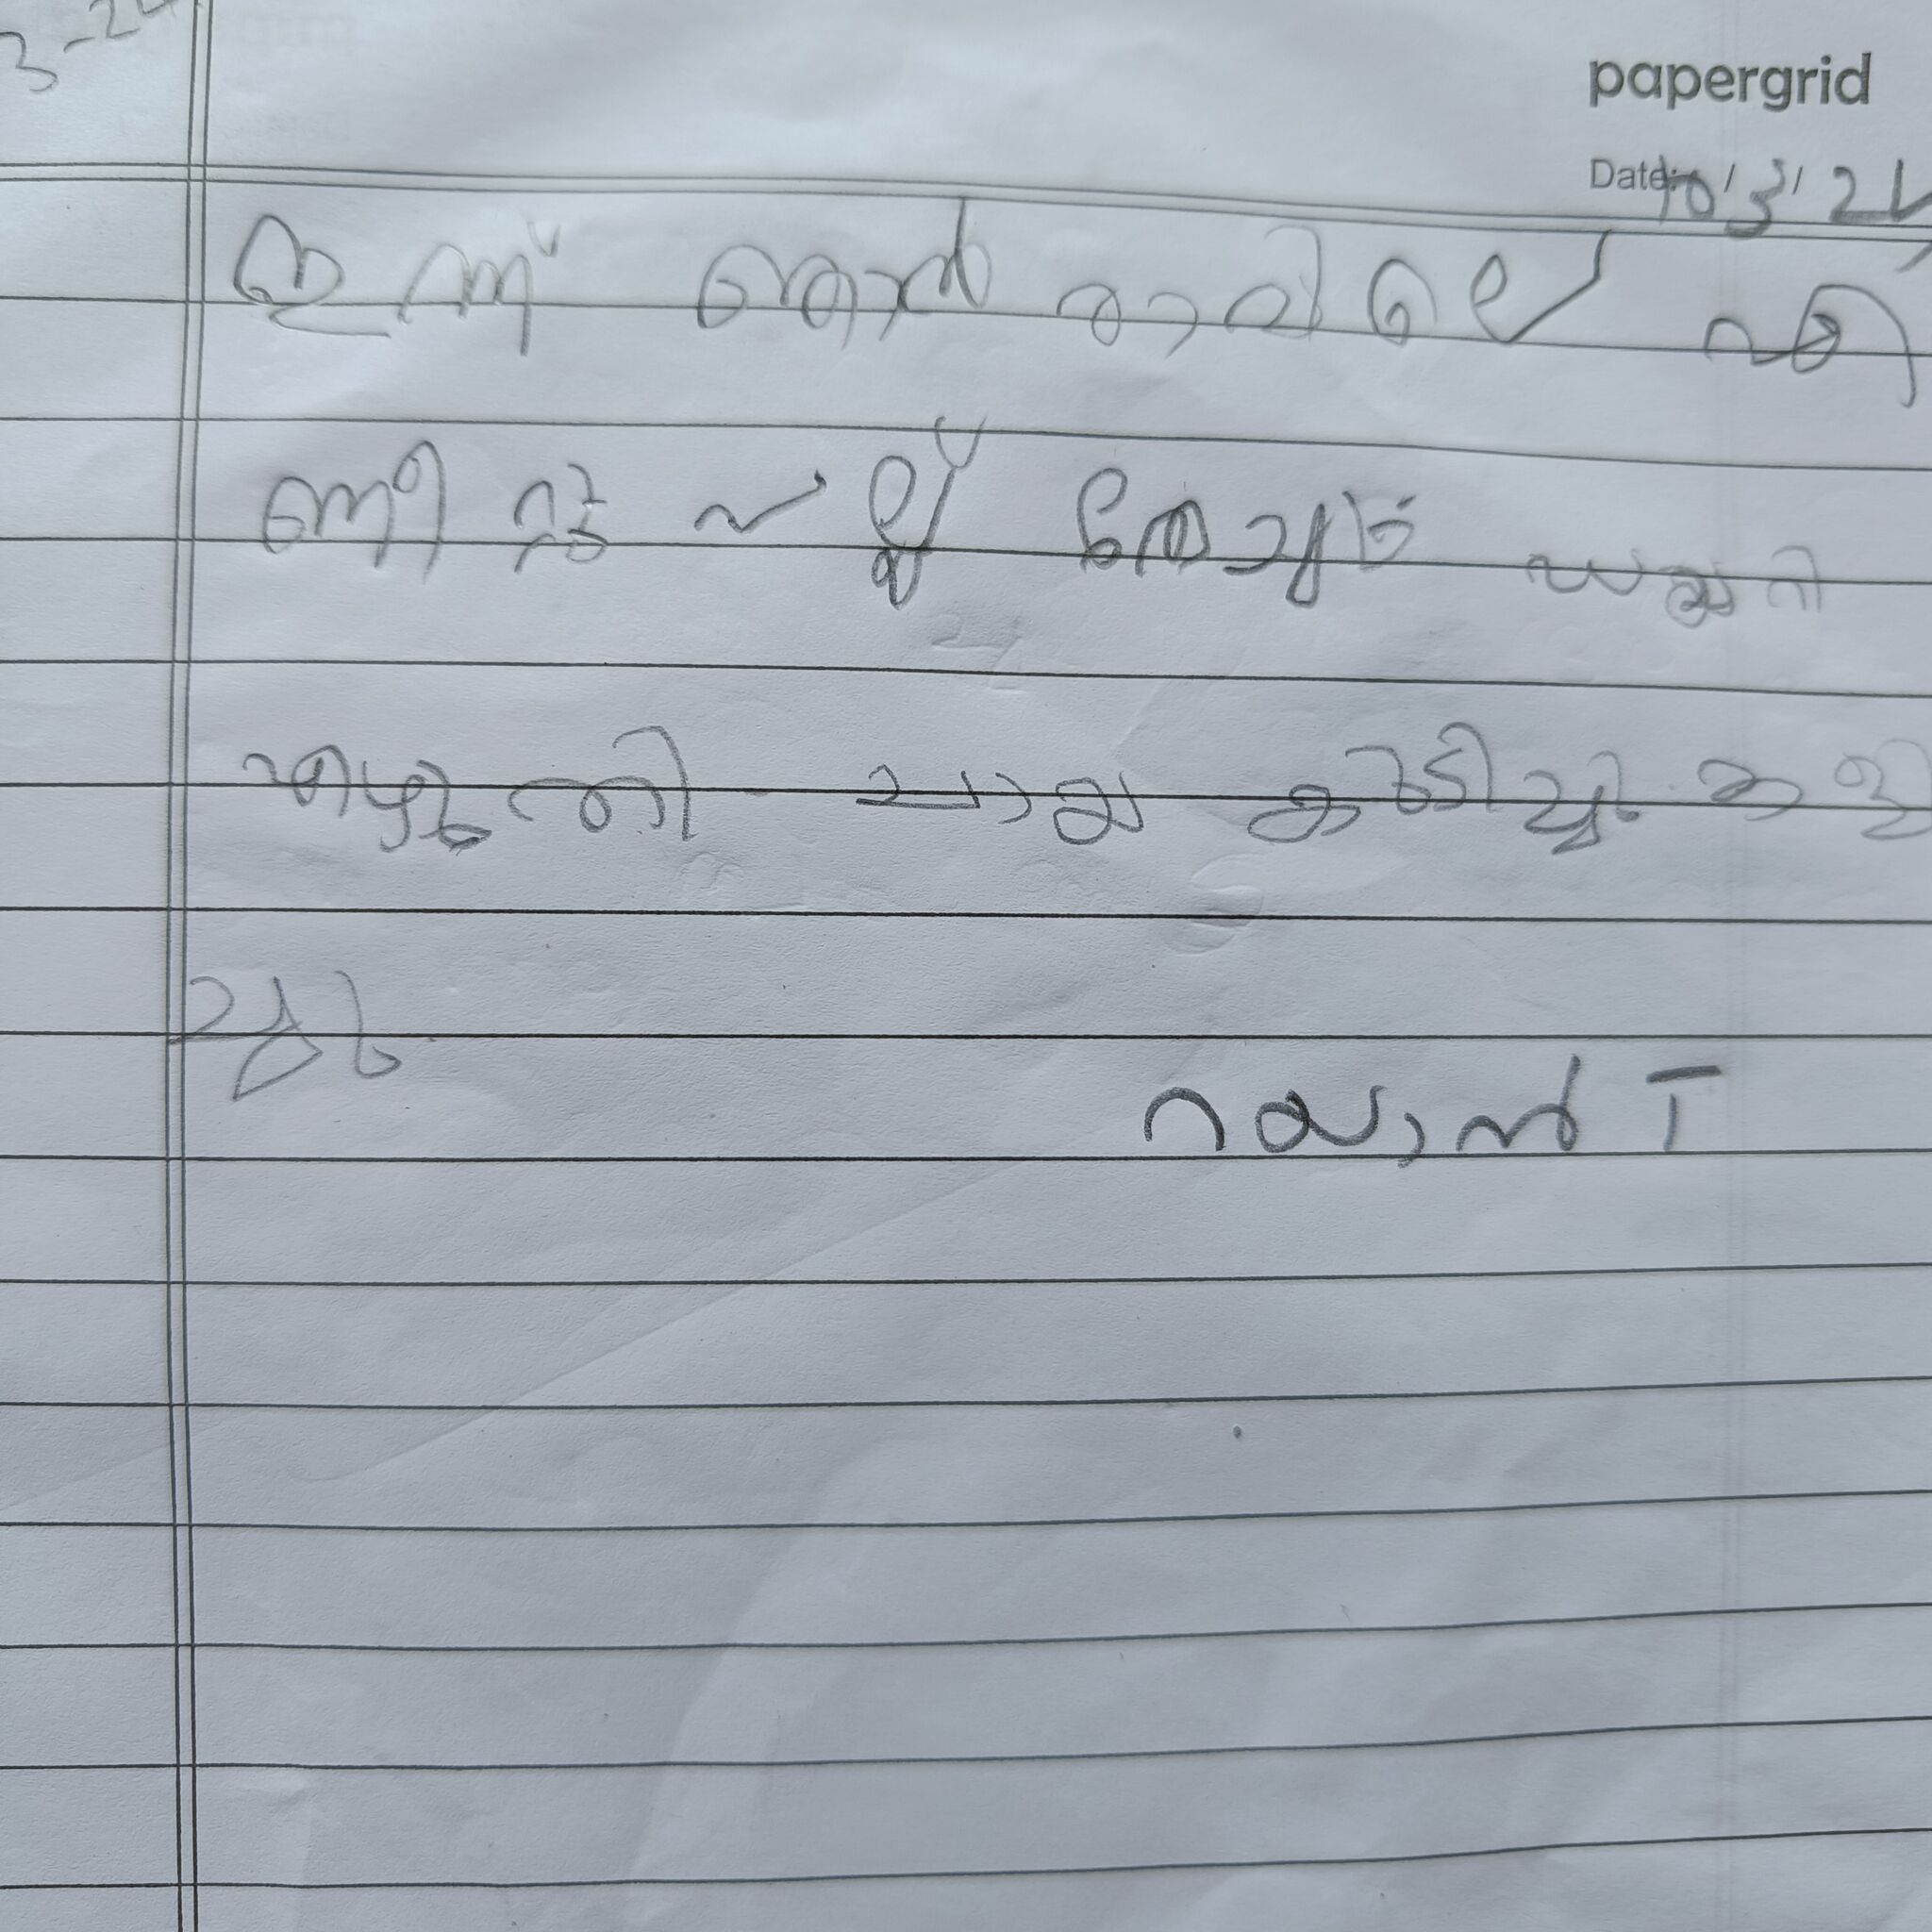 3-24
papergrid
Date: 10/3/24
ഇന്ന് ഞാൻ രാവിലെ എ
ണീറ്റു പല്ല് തേച്ചു
ചായ കുടിച്ചു. കളി
ച്ചു.
റയാൻ T